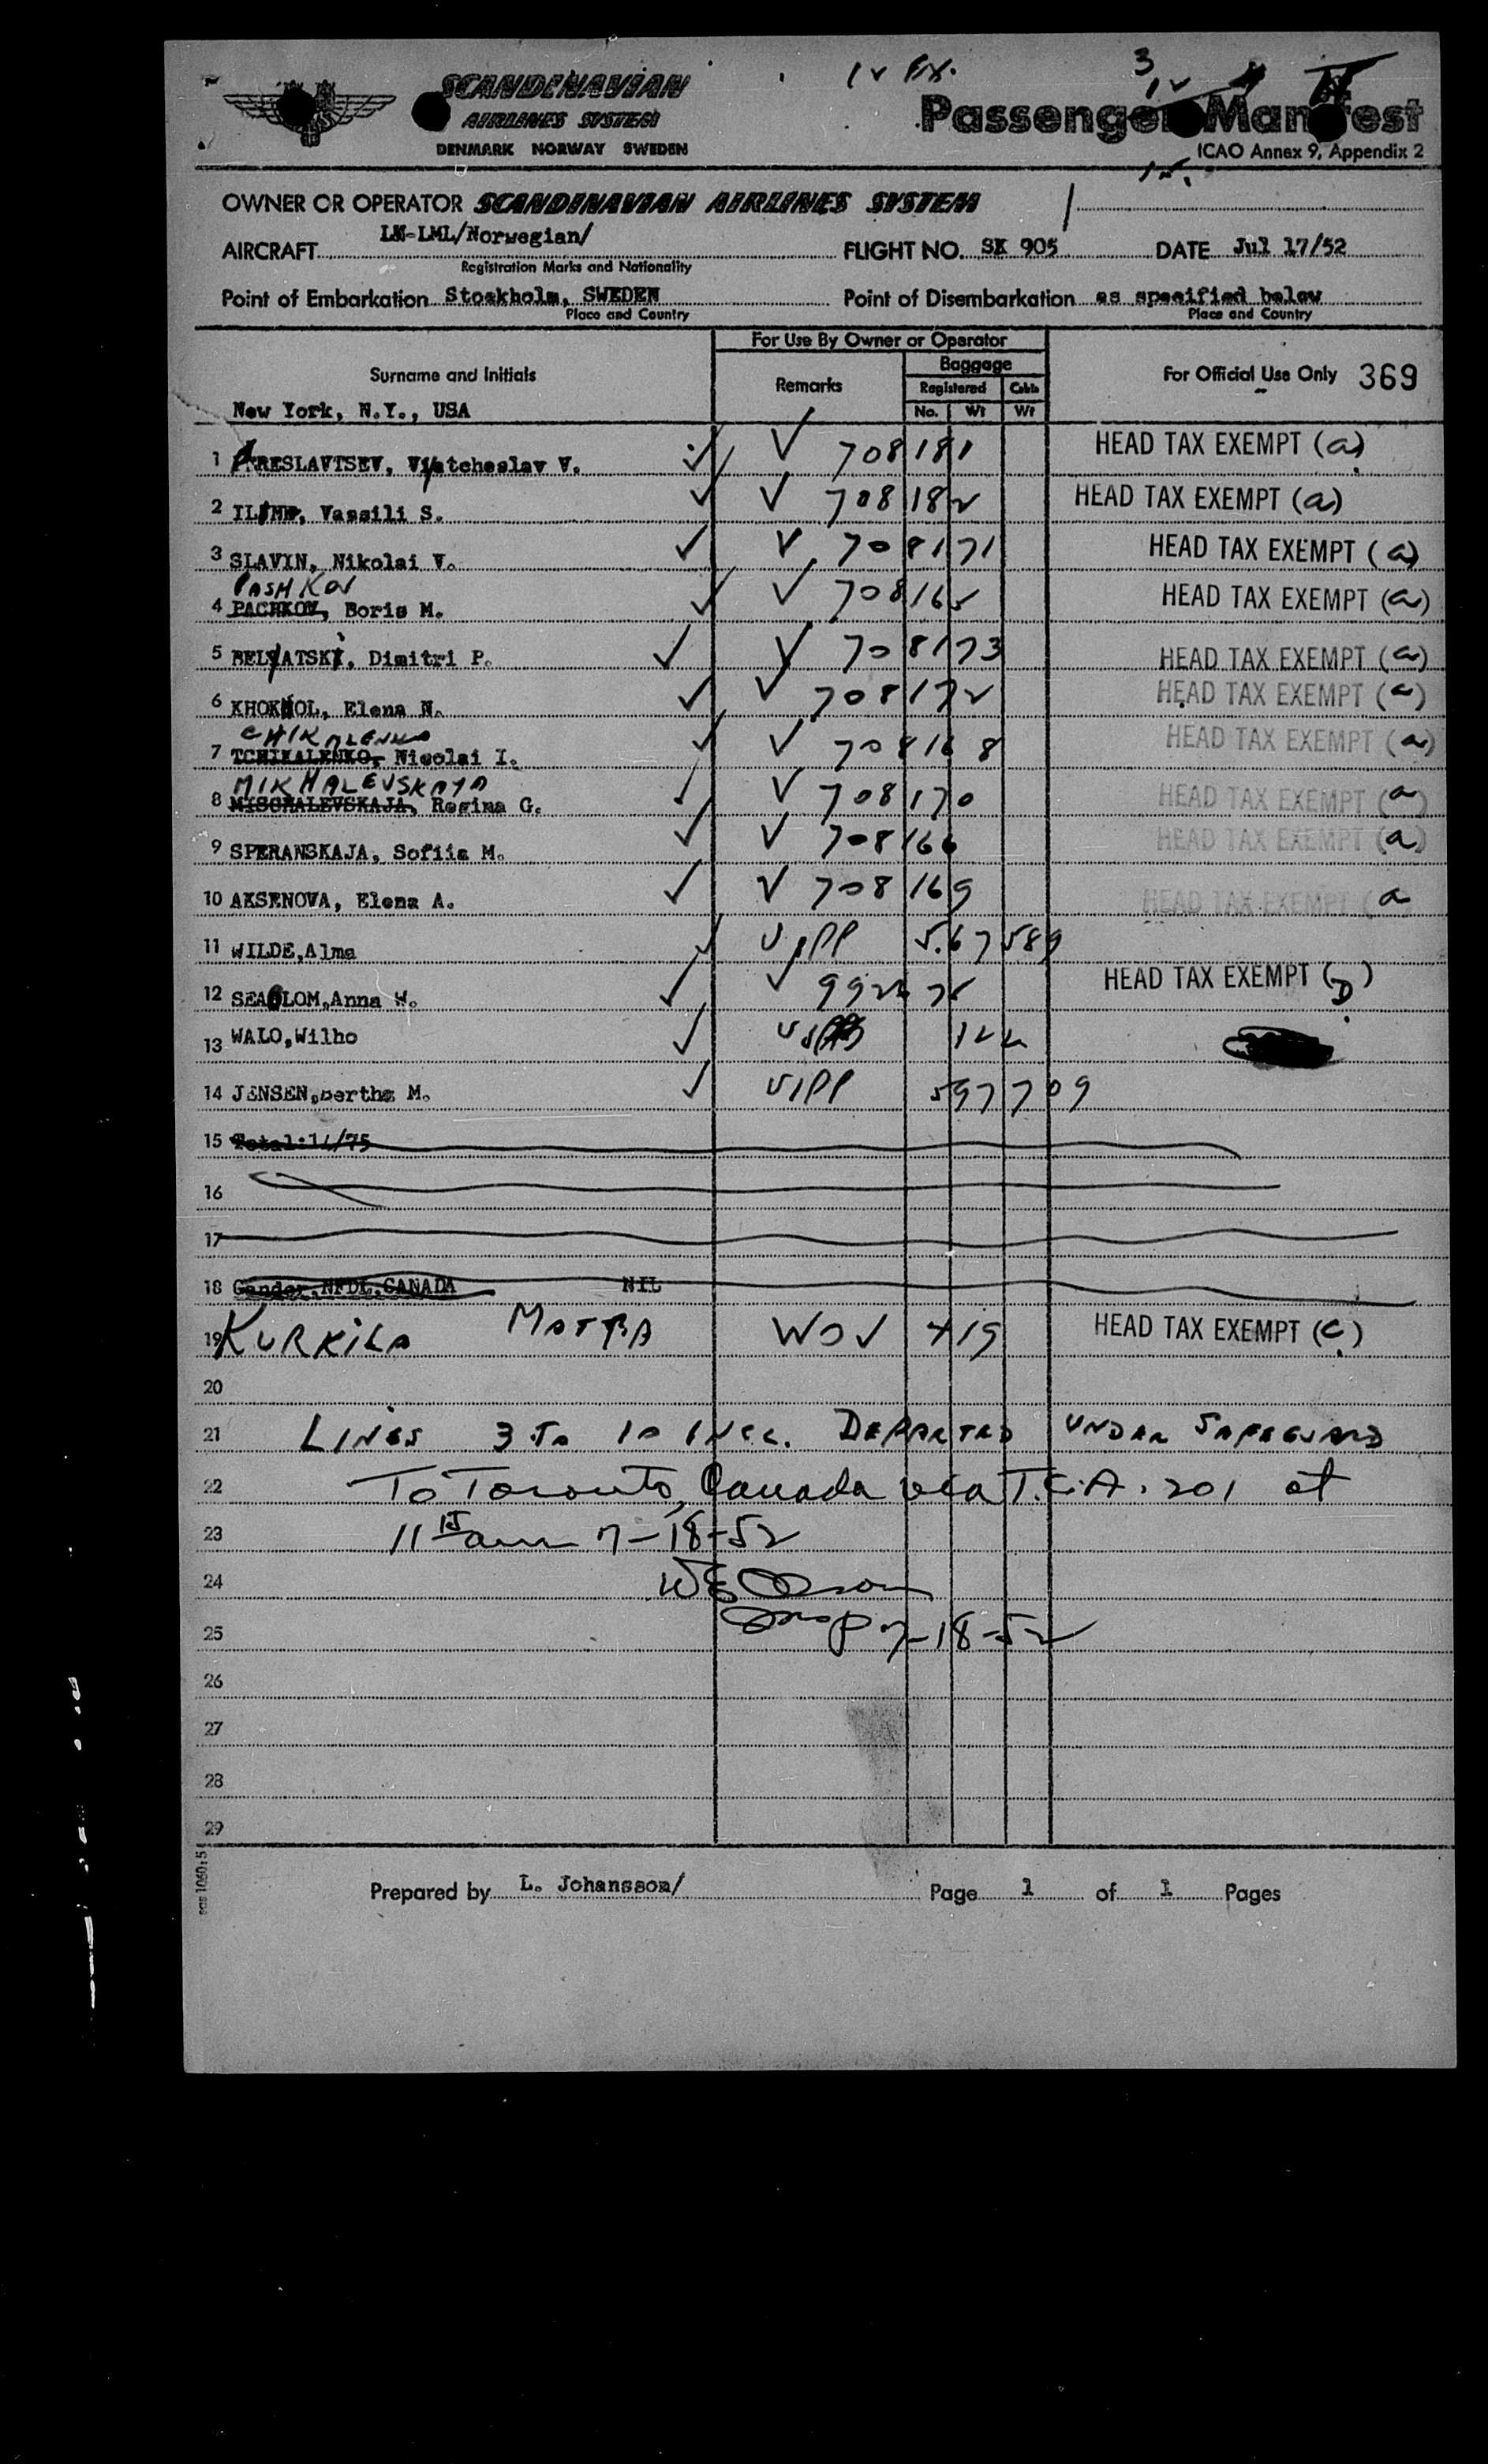 SCANDINAVIAN
AIRLINES SYSTEM
DENMARK NORWAY SWEDEN
Passenger Manifest
ICAO Annex 9, Appendix 2
OWNER OR OPERATOR SCANDINAVIAN AIRLINES SYSTEM
AIRCRAFT LN-LML/Norwegian/ FLIGHT NO. SK 905 DATE Jul 17/52
Registration Marks and Nationality
Point of Embarkation Stockholm, SWEDEN Point of Disembarkation as specified below
Place and Country Place and Country
For Use By Owner or Operator
Surname and Initials Remarks Baggage For Official Use Only 369
Registered Cabin
New York, N.Y., USA No. Wt Wt
1 PERESLAVTSEV, Viatcheslav V. ✓ ✓ 708181 HEAD TAX EXEMPT (a)
2 Vassili S. ✓ ✓ 708182 HEAD TAX EXEMPT (a)
3 SLAVIN, Nikolai V. ✓ ✓ 708171 HEAD TAX EXEMPT (a)
PASHKOV
4 PACHKOV, Boris M. ✓ ✓ 708165 HEAD TAX EXEMPT (a)
5 BELYATSKI, Dimitri P. ✓ ✓ 708173 HEAD TAX EXEMPT (a)
6 KHOKHOL, Elena N. ✓ ✓ 708172 HEAD TAX EXEMPT (a)
CHIKALENKO
7 TCHIKALENKO, Nicolai I. ✓ ✓ 708168 HEAD TAX EXEMPT (a)
MIKHALEVSKAYA
8 MISCHALEVSKAJA, Regina G. ✓ ✓ 708170 HEAD TAX EXEMPT (a)
9 SPERANSKAJA, Sofiia M. ✓ ✓ 708166 HEAD TAX EXEMPT (a)
10 AKSENOVA, Elena A. ✓ ✓ 708169 HEAD TAX EXEMPT (a
11 WILDE,Alma ✓ USPP 567589
12 SEABLOM,Anna W. ✓ ✓ HEAD TAX EXEMPT (D)
13 WALO,Wilho ✓ 122
14 JENSEN,Bertha M. ✓ USPP 597709
15 Total:14/75
16
17
18 Gander,NFDL,CANADA NIL
19 KURKILA MATBA WOV 419 HEAD TAX EXEMPT (c)
20
21 LINES 3 TO 10 INCL. DEPARTED UNDER SAFEGUARD
22 To Toronto, Canada via T.C.A. 201 at
23 11 15 am 7-18-52
24 Olson
25 Insp 7-18-52
26
27
28
29
Prepared by L. Johansson/ Page 1 of 1 Pages